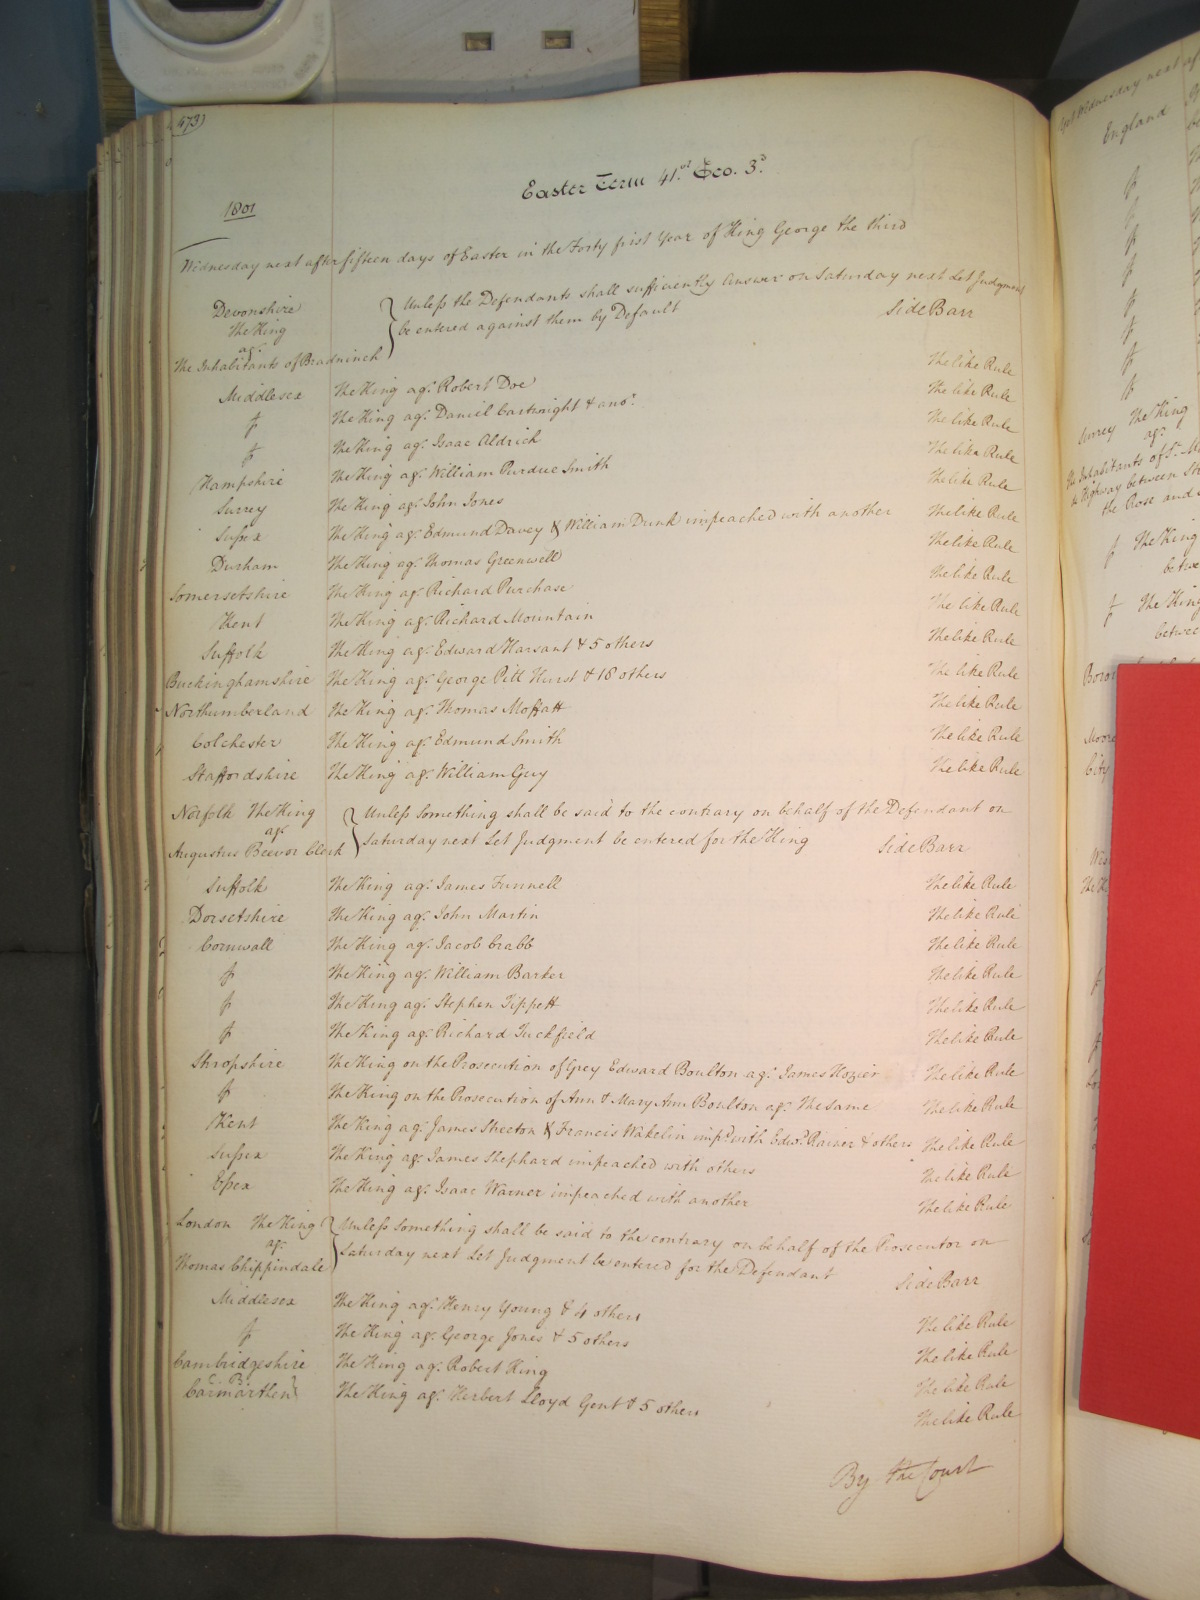 473)
Easter Term 41.st Geo. 3.d
1801
Wednesday next after fifteen days of Easter in the Forty first Year of King George the third
Devonshire
The King
agt.
The Inhabitants of Bradninch
Unless the Defendants shall sufficiently Answer on Saturday next Let Judgment
be entered against them by Default Side Barr
The like Rule
Middlesex The King agt. Robert Doe The like Rule
The King agt. Daniel Cartwright & anor. The like Rule
The King agt. Isaac Aldrich The like Rule
Hampshire The King agt. William Purdue Smith The like Rule
Surrey The King agt. John Jones The like Rule
Sussex The King agt. Edmund Davey & William Dunk impeached with another The like Rule
Durham The King agt. Thomas Greenwell The like Rule
Somersetshire The King agt. Richard Purchase The like Rule
Kent The King agt. Richard Mountain The like Rule
Suffolk The King agt. Edward Harsant & 5 others The like Rule
Buckinghamshire The King agt. George Pitt Hurst & 18 others The like Rule
Northumberland The King agt. Thomas Moffatt The like Rule
Colchester The King agt. Edmund Smith The like Rule
Staffordshire The King agt. William Guy
Norfolk The King
agt.
Augustus Beevor Clerk
Unless something shall be said to the contrary on behalf of the Defendant on
Saturday next Let Judgment be entered for the King Side Barr
Suffolk The King agt. James Funnell The like Rule
Dorsetshire The King agt. John Martin The like Rule
Cornwall The King agt. Jacob Crabb The like Rule
The King agt. William Barker The like Rule
The King agt. Stephen Tippett The like Rule
The King agt. Richard Tuckfield The like Rule
Shropshire The King on the Prosecution of Grey Edward Boulton agt. James Hozier The like Rule
The King on the Prosecution of Ann & Mary Ann Boulton agt. The same The like Rule
Kent The King agt. James Skeeton & Francis Wakelin impd. with Edwd. Rainer & others The like Rule
Sussex The King agt. James Shephard impeached with others The like Rule
Essex The King agt. Isaac Warner impeached with another The like Rule
London The King
agt.
Thomas Chippindale
Unless something shall be said to the contrary on behalf of the Prosecutor on
Saturday next Let Judgment be entered for the Defendant Side Barr
Middlesex The King agt. Henry Young & 4 others The like Rule
The King agt. George Jones & 5 others The like Rule
Cambridgeshire The King agt. Robert King The like Rule
C. B.
Carmarthen The King agt. Herbert Lloyd Gent & 5 others The like Rule
By the Court
Wednesday next
England
Surrey The King
agt.
The Inhabitants of St.
Highway between
the Rose and
The King
The King